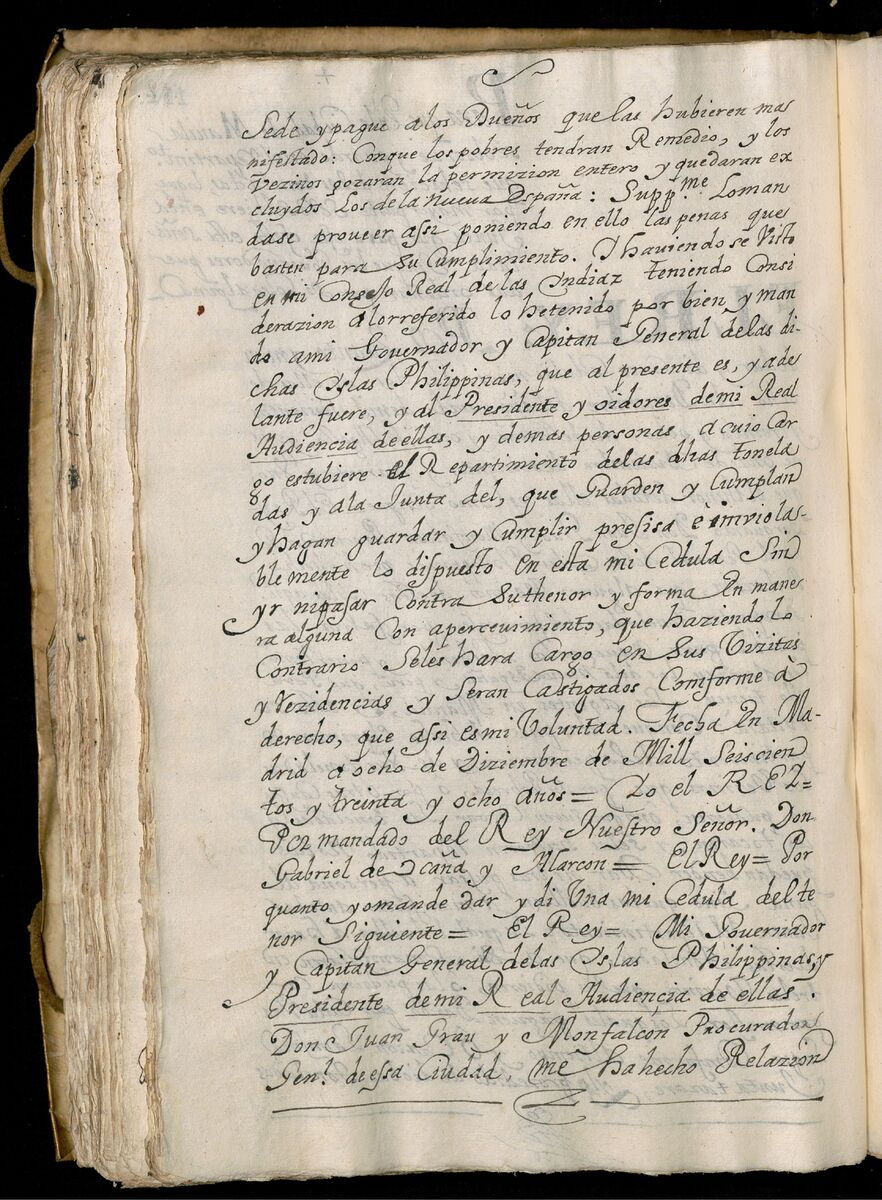 Sede y pague a los Dueños que las hubieren mas
nifestado: Conque los pobres tendran Remedio, y los
Vezinos gozaran la permizion entero y quedaran ex
cluydos Los de la Nueva España: Supp.me Loman
dase proveer assi poniendo en ello las penas que
basten para Su Cumplimiento. Y haviendo se Visto
en mi Consejo Real de las Indiaz teniendo Consi
derazion alorreferido lo hetenido por bien y man
do ami Governador y Capitan General delas di-
chas Islas Philippinas, que al presente es, y ade
lante fuere, y al Presidente y oidores demi Real
Audiencia de ellas, y demas personas a cuio Car
go estubiere el Repartimiento delas dhas tonela
das y ala Junta del, que Guarden y Cumplan
y hagan guardar y Cumplir presisa è imviolas-
blemente lo dispuesto en esta mi Cedula Sin
yr nipasar Contra Suthenor y forma En mane
ra alguna Con apercevimiento, que haziendo lo
Contrario Seles hara Cargo en Sus Vizitas
y rezidencias y Seran Castigados Comforme à
derecho, que assi es mi Voluntad. Fecha En Ma-
drid a ocho de Diziembre de Mill Seiscien
tos y treinta y ocho años = Yo el REY=
Por mandado del Rey Nuestro Señor. Don
Gabriel de Ocaña y Alarcon = El Rey = Por
quanto yomande dar y di Una mi Cedula del te
nor Siguiente = El Rey = Mi Governador
y Capitan General delas Islas Philippinas, y
Presidente demi Real Audiencia de ellas.
Don Juan Grau y Monfalcon Procurador
Gen.l de essa Ciudad, me hahecho Relazion